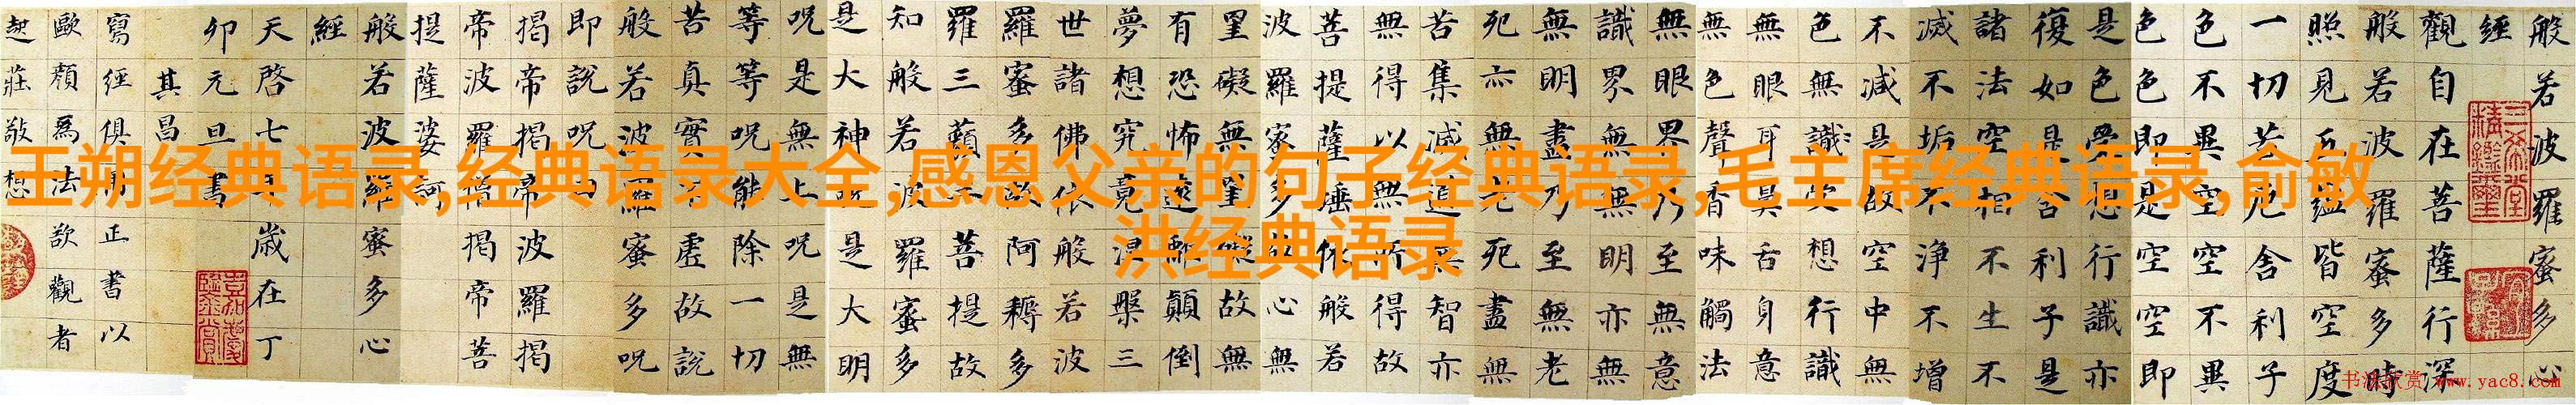 王朔经典语录,经典语录大全,感恩父亲的句子经典语录,毛主席经典语录,俞敏
洪经典语录
般若波羅蜜多心
經
觀自在菩薩行深
般若波羅蜜多時
照見五蘊皆空度
一切苦厄舍利子
色不異空空不異
色色即是空空即
是色受想行識亦
復如是舍利子是
諸法空相不生不
滅不垢不淨不增
不減是故空中無
色無識受想行識
無眼耳鼻舌身意
無色聲香味觸法
無眼界乃至無意
識界無無明亦無
無明盡乃至無老
死亦無老死盡無
苦集滅道無智亦
無得以無所得故
菩提薩埵依般若
波羅蜜多故心無
罣礙無罣礙故無
有恐怖遠離顛倒
夢想究竟涅槃三
世諸佛依般若波
羅蜜多故阿耨多
羅三藐三菩提故
知般若波羅蜜多
是大神咒是大明
咒是無上咒是無
等等咒能除一切
苦真實不虛故說
般若波羅蜜多咒
即說咒曰
揭帝揭帝波羅揭
帝波羅僧揭帝菩
提薩婆訶
般若波羅蜜多心
經
天啓七年歲在丁
卯元旦書
其昌
寫經俱用正書以
歐顏爲法欲觀者
起莊敬想
书法欣赏 www.yac8.com